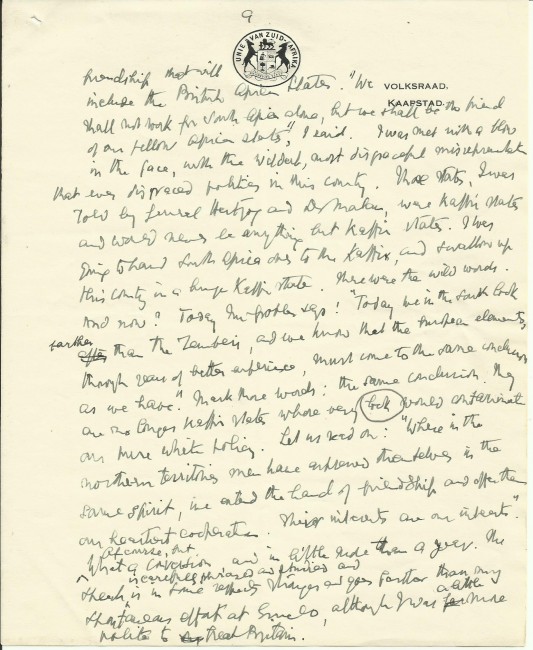 9
UNIE VAN ZUID-AFRIKA
VOLKSRAAD,
KAAPSTAD.
friendship that will
include the British African States. "We
shall not work for South Africa alone, but we shall be the friend
of our fellow African States", I said. I was met with a blow
in the face, with the wildest, most disgraceful misrepresentation
that ever disgraced politics in this country. Those states, I was
told by General Hertzog and Dr Malan, were Kaffir states
and would never be anything but Kaffir states. I was
going to hand South Africa over to the Kaffir, and swallow up
this country in a huge Kaffir state. These were the wild words.
And now? Today Mr Grobler says: "Today we in the South look
farther than the Zambesi, and we know that the European elements
through years of better experience, must come to the same conclusion
as we have." Mark those words: the same conclusion. They
are no longer Kaffir states whose very look would contaminate
our pure white policy. Let us read on: "Where in the
northern territories men have expressed themselves in the
same spirit, we extend the hand of friendship and offer them
our heartiest cooperation. Their interests are our interests".
What a conversion and in little more than a year. The
of course, but
is carefully phrased and studied and
speech in some respects stronger and goes farther than my
spontaneous effort at Ermelo, although I was a little more
polite to Great Britain.